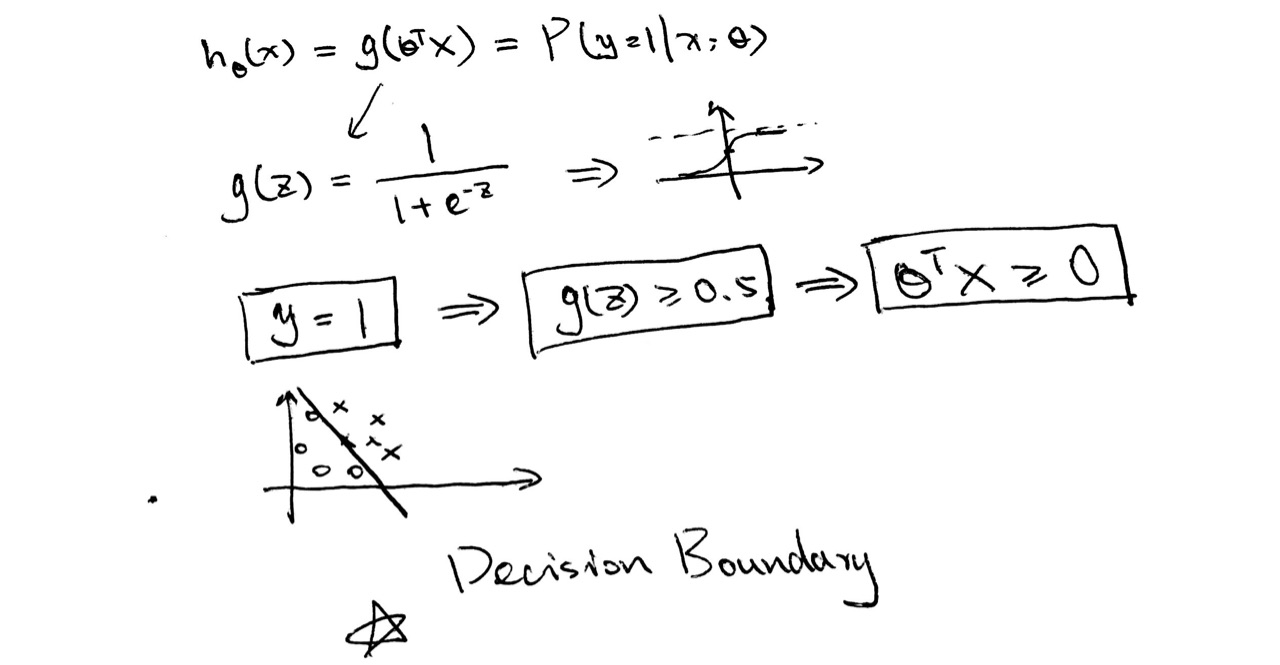 h_θ(x) = g(θᵀx) = P(y=1|x;θ)
g(z) = 1/(1+e^{-z}) ⇒
y = 1 ⇒ g(z) ≥ 0.5 ⇒ θᵀx ≥ 0
Decision Boundary